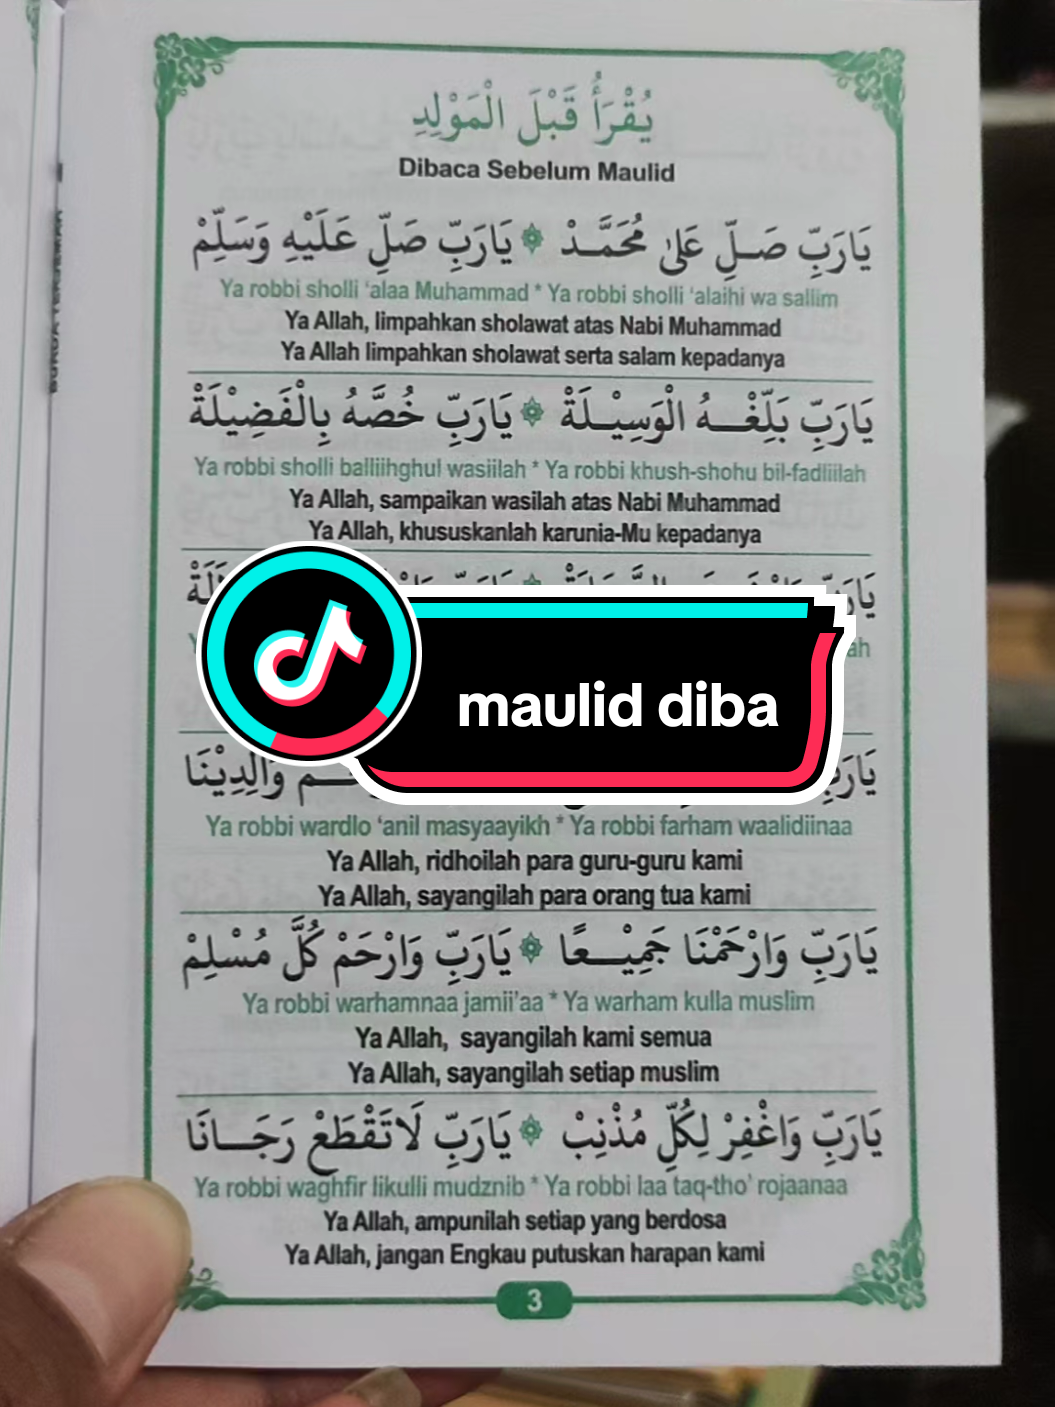 يُقْرَأُ قَبْلَ الْمَوْلِدِ
Dibaca Sebelum Maulid
يَارَبِّ صَلِّ عَلىٰ مُحَمَّدْ ۞ يَارَبِّ صَلِّ عَلَيْهِ وَسَلِّمْ
Ya robbi sholli ‘alaa Muhammad * Ya robbi sholli ‘alaihi wa sallim
Ya Allah, limpahkan sholawat atas Nabi Muhammad
Ya Allah limpahkan sholawat serta salam kepadanya
يَارَبِّ بَلِّغْهُ الْوَسِيْلَةْ ۞ يَارَبِّ خُصَّهُ بِالْفَضِيْلَةْ
Ya robbi sholli balliihghul wasiilah * Ya robbi khush-shohu bil-fadliilah
Ya Allah, sampaikan wasilah atas Nabi Muhammad
Ya Allah, khususkanlah karunia-Mu kepadanya
maulid diba
وَالِدِيْنَا
Ya robbi wardlo ‘anil masyaayikh * Ya robbi farham waalidiinaa
Ya Allah, ridhoilah para guru-guru kami
Ya Allah, sayangilah para orang tua kami
يَارَبِّ وَارْحَمْنَا جَمِيْعًا ۞ يَارَبِّ وَارْحَمْ كُلَّ مُسْلِمْ
Ya robbi warhamnaa jamii’aa * Ya warham kulla muslim
Ya Allah, sayangilah kami semua
Ya Allah, sayangilah setiap muslim
يَارَبِّ وَاغْفِرْ لِكُلِّ مُذْنِبْ ۞ يَارَبِّ لَاتَقْطَعْ رَجَانَا
Ya robbi waghfir likulli mudznib * Ya robbi laa taq-tho’ rojaanaa
Ya Allah, ampunilah setiap yang berdosa
Ya Allah, jangan Engkau putuskan harapan kami
3